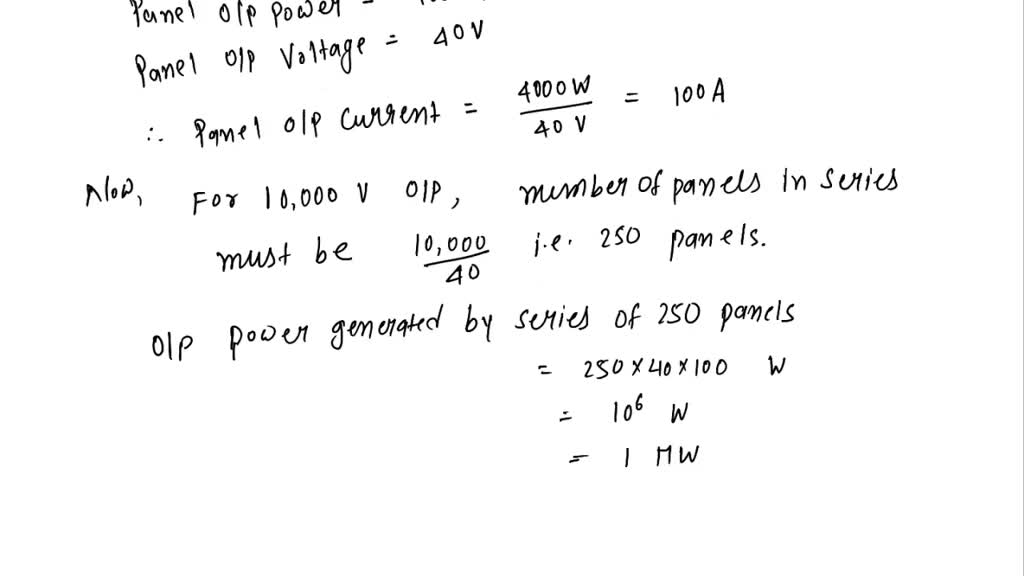 Panel O/P Power =
Panel O/P Voltage = 40V
∴ Panel O/P Current = 4000W / 40 V = 100A
Now, For 10,000 V O/P, number of panels in series
must be 10,000 / 40 i.e. 250 panels.
O/P power generated by series of 250 panels
= 250 × 40 × 100 W
= 10⁶ W
= 1 MW